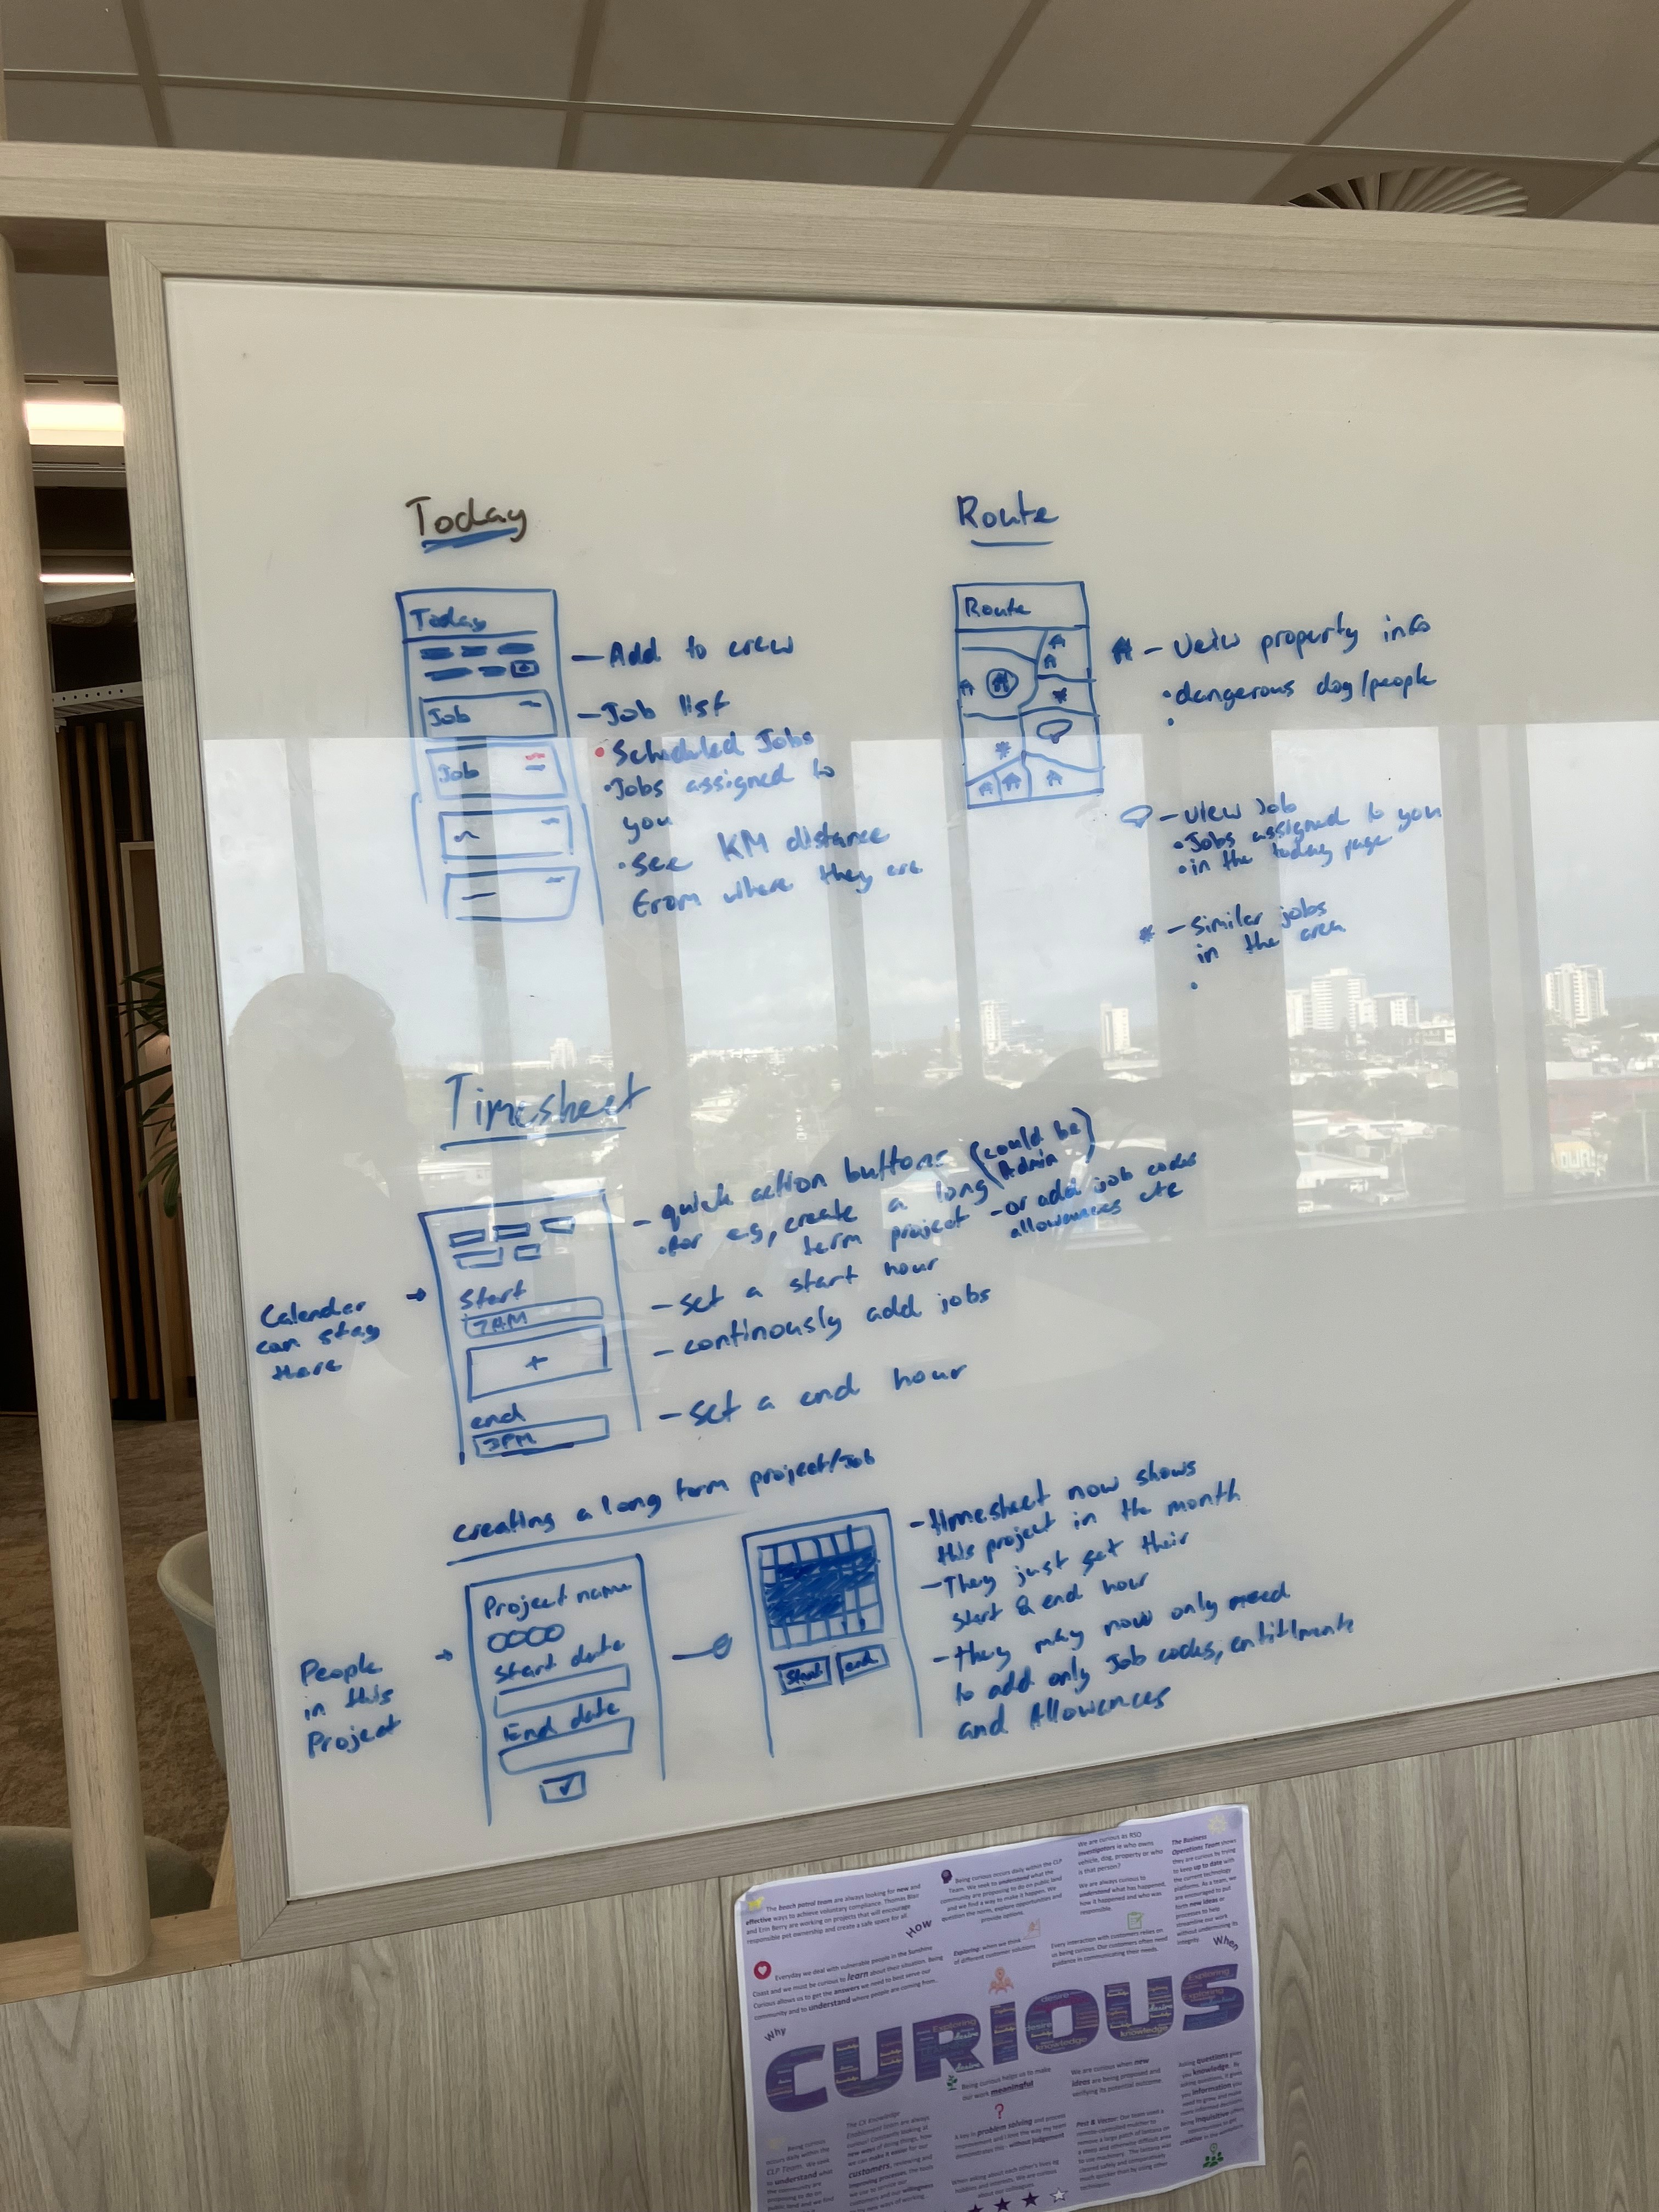 Today
Today
Job
Job
- Add to crew
- Job list
• Scheduled Jobs
• Jobs assigned to
you
• see KM distance
From where they are
Route
Route
- Veiw property info
• dangerous dog/people
- view Job
• Jobs assigned to you
• in the today page
* - Similar jobs
in the area
Timesheet
Calender
can stay
there
Start
7AM
+
end
3PM
- quick action buttons (could be
Admin)
• for eg, create a long
term project - or add job codes
allowances etc
- set a start hour
- continously add jobs
- set a end hour
creating a long term project/Job
People
in this
Project
Project name
Start date
End date
Start
end
- timesheet now shows
this project in the month
- They just set their
start & end hour
- they may now only need
to add only Job codes, entitlments
and Allowances
The Beach patrol team are always looking for new and
effective ways to achieve voluntary compliance. Thomas Blair
and Erin Berry are working on projects that will encourage
responsible pet ownership and create a safe space for all.
How
Being curious occurs daily within the CLP
Team. We seek to understand what the
community are proposing to do on public land
and we find a way to make it happen. We
question the norm, explore opportunities and
provide options.
We are curious as RSO
investigators ie who owns
vehicle, dog, property or who
is that person?
We are always curious to
understand what has happened,
how it happened and who was
responsible.
The Business
Operations Team shows
they are curious by trying
to keep up to date with
the current technology
platforms. As a team, we
are encouraged to put
forth new ideas or
processes to help
streamline our work
without undermining its
integrity.
When
Everyday we deal with vulnerable people in the Sunshine
Coast and we must be curious to learn about their situation. Being
Curious allows us to get the answers we need to best serve our
community and to understand where people are coming from.
Why
Exploring: when we think
of different customer solutions
Every interaction with customers relies on
us being curious. Our customers often need
guidance in communicating their needs.
CURIOUS
Being curious helps us to make
our work meaningful
We are curious when new
ideas are being proposed and
verifying its potential outcome.
A key in problem solving and process
improvement and I love the way my team
demonstrates this - without judgement
When asking about each other's lives eg
hobbies and interests. We are curious
about our colleagues